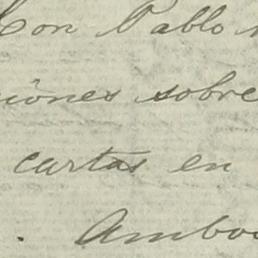 Con Pablo
ciones sobre
cartas en
. Ambo